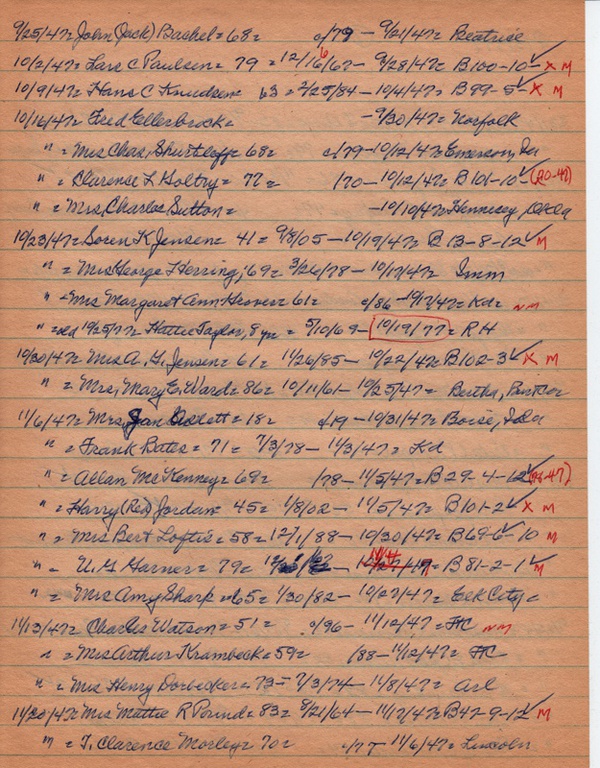 9/25/47= John (Jack) Bashel= 68= c/79 - 9/21/47= Beatrice
10/2/47= Lars C Paulsen= 79 = 12/16/67- 9/28/47= B100-10-✓ X M
10/9/47= Hans C Knudsen= 63 = 2/25/84- 10/4/47= B99-5-✓ X M
10/16/47= Fred Ellerbrock= -9/30/47= Norfolk
" = Mrs Chas, Shurtleff= 68= c/79-10/12/47= Emerson, Ia
" = Clarence L Goltry= 77= /70- 10/12/47= B101-10-✓ (20-47)
" = Mrs, Charles Sutton= -10/10/47= Hennesey, Okla
10/23/47= Soren K Jensen= 41= 9/8/05- 10/19/47= B 13-8-12✓ M
" = Mrs George Herring, 69= 3/26/78- 10/17/47= Imm
" = Mrs Margaret Ann Hoover= 61= c/86- 10/7/47= Kd= NM
" = Hattie Taylor, 8 yr = 5/10/69- 10/19/77= RH
10/30/47= Mrs A. G, Jensen= 61= 11/26/85- 10/22/47= B102-3✓ X M
" = Mrs, Mary E. Ward= 86= 10/11/61- 10/25/47= Bertha,
11/6/47= Mrs, Jan = 18= c/19 -10/31/47= Boise, Ida
" = Frank Bates= 71= 7/3/78- 11/3/47= Kd
" = Allan McKenney= 69= /78- 11/5/47= B29-4-12✓
" = Harry (Red) Jordan= 45= 1/8/02- 11/5/47= B101-2✓ X M
" = Mrs Bert Loftis= 58= 12/1/88- 10/30/47= B69-6-10✓ M
" = U. G Garner= 79= - 11/4 B81-2-1✓ M
" = Mrs Amy Sharp= 65= 1/30/82- 10/27/47= Elk City=
11/13/47= Charles Watson= 51= c/96- 11/12/47= FC NM
" = Mrs Arthur Krambeck= 59= /88- 11/12/47= FC
" = Mrs Henry Dorbecker= 73= 7/3/74- 11/8/47= Arl
11/20/47= Mrs Mattie R Pound= 83= 8/21/64- 11/17/47= B47-9-12✓ M
" = T. Clarence Morley= 70= c/77- 11/6/47= Lincoln